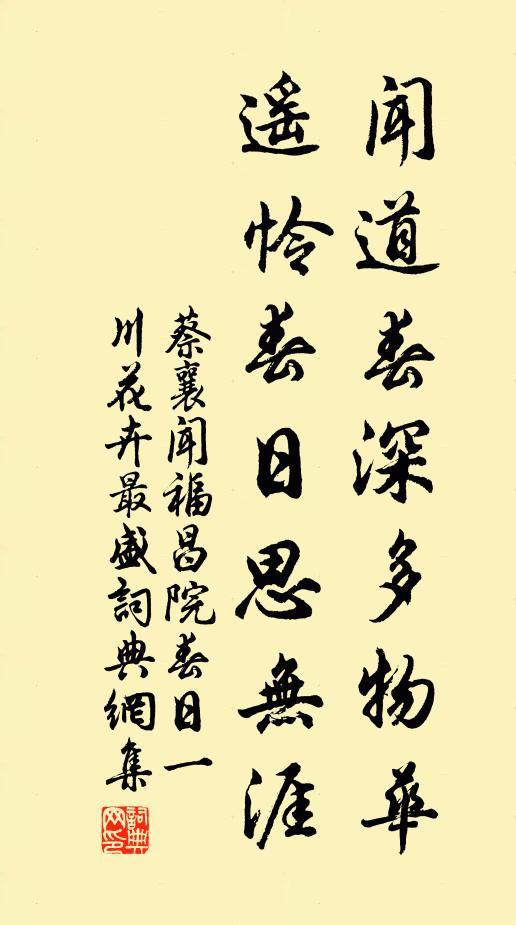 聞道春深多物華
遥怜春日思無涯
蔡襄聞福昌院春日一
川花卉最盛詞典網集
詞典网印